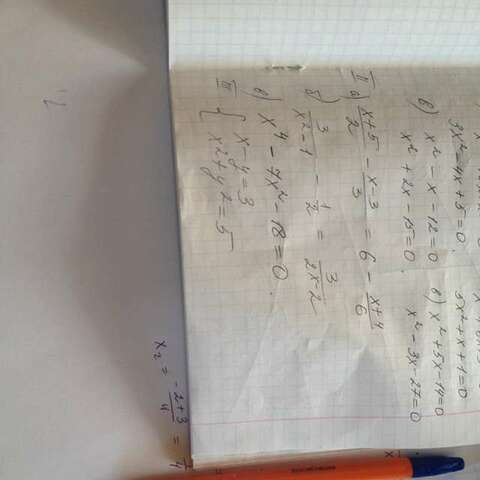 3x²-4x+5=0. 3x²+x+1=0
в) x²-x-12=0 в) x²+5x-14=0
x²+2x-15=0. x²-3x-27=0
II a) x+5/2 - x-3/3 = 6 - x+4/6
б) 3/x²-1 - 1/2 = 3/2x-2
в) x⁴-7x²-18=0.
III { x-y=3
x²+y²=5
x₂ = -2+3/4 =